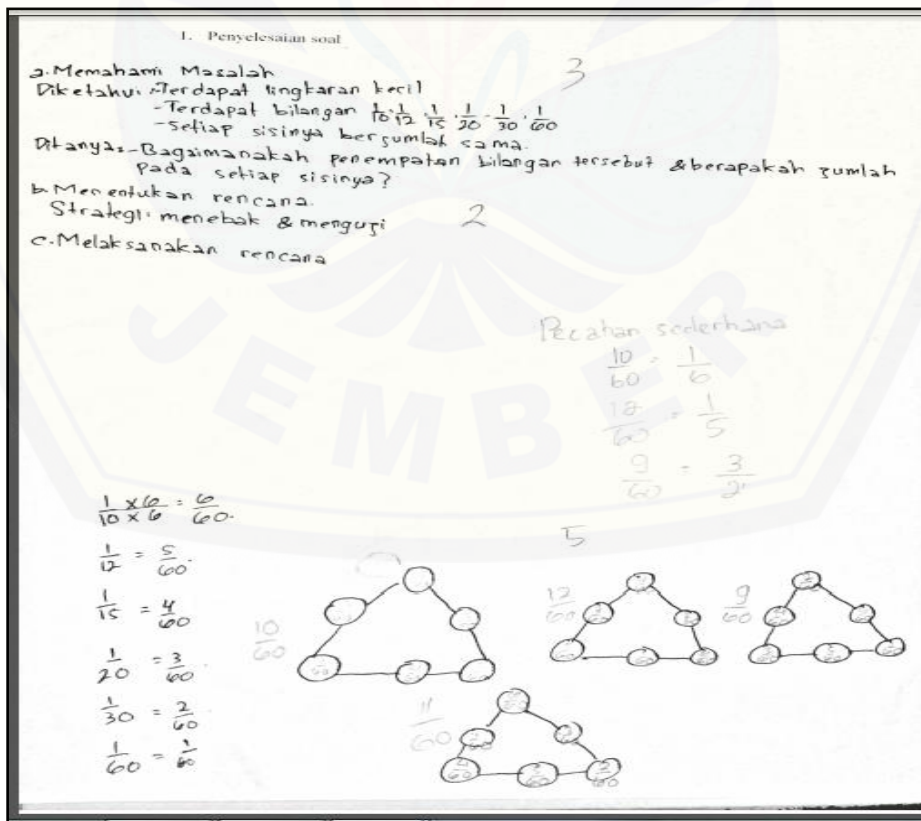 1. Penyelesaian soal
a. Memahami Masalah
3
Diketahui: -Terdapat lingkaran kecil
-Terdapat bilangan 1/10, 1/12, 1/15, 1/20, 1/30, 1/60
-setiap sisinya berjumlah sama.
Ditanya: -Bagaimanakah penempatan bilangan tersebut & berapakah jumlah
pada setiap sisinya?
b. Menentukan rencana.
Strategi: menebak & menguji
2
c. Melaksanakan rencana
JEMBER
Pecahan sederhana
10/60 = 1/6
12/60 = 1/5
9/60 = 3/2
1/10 × 6/6 = 6/60.
1/12 = 5/60.
1/15 = 4/60
1/20 = 3/60.
1/30 = 2/60
1/60 = 1/60
5
10/60
12/60
9/60
11/60